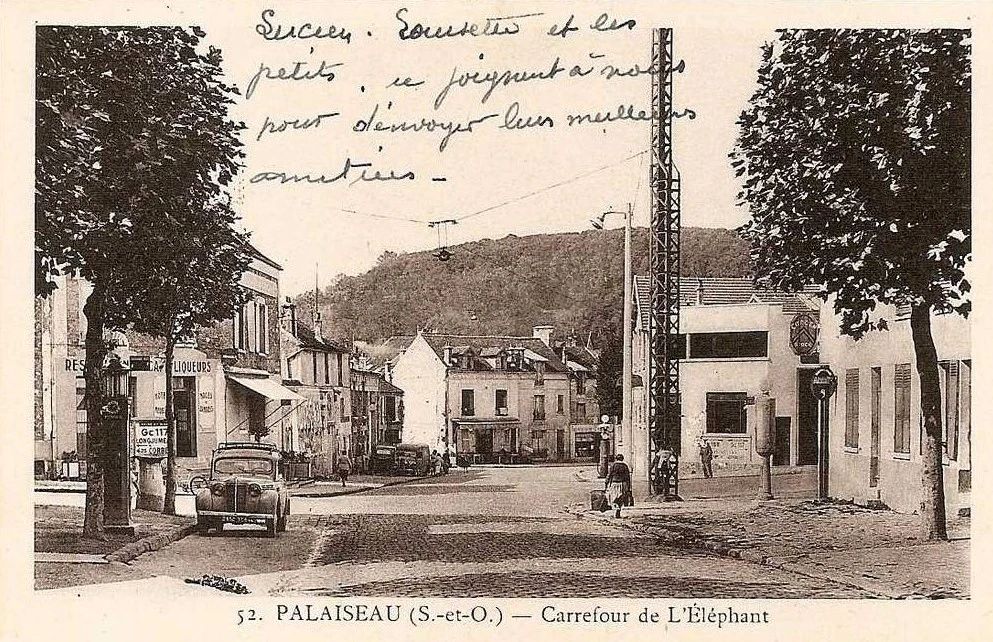 Lucien. Lousette et les
petits, se joignent à nous
pour d'envoyer leurs meilleurs
amitiées -
LIQUEURS
Gc 117
LONGJUMEAU
CORBEIL
52. PALAISEAU (S.-et-O.) — Carrefour de L'Éléphant